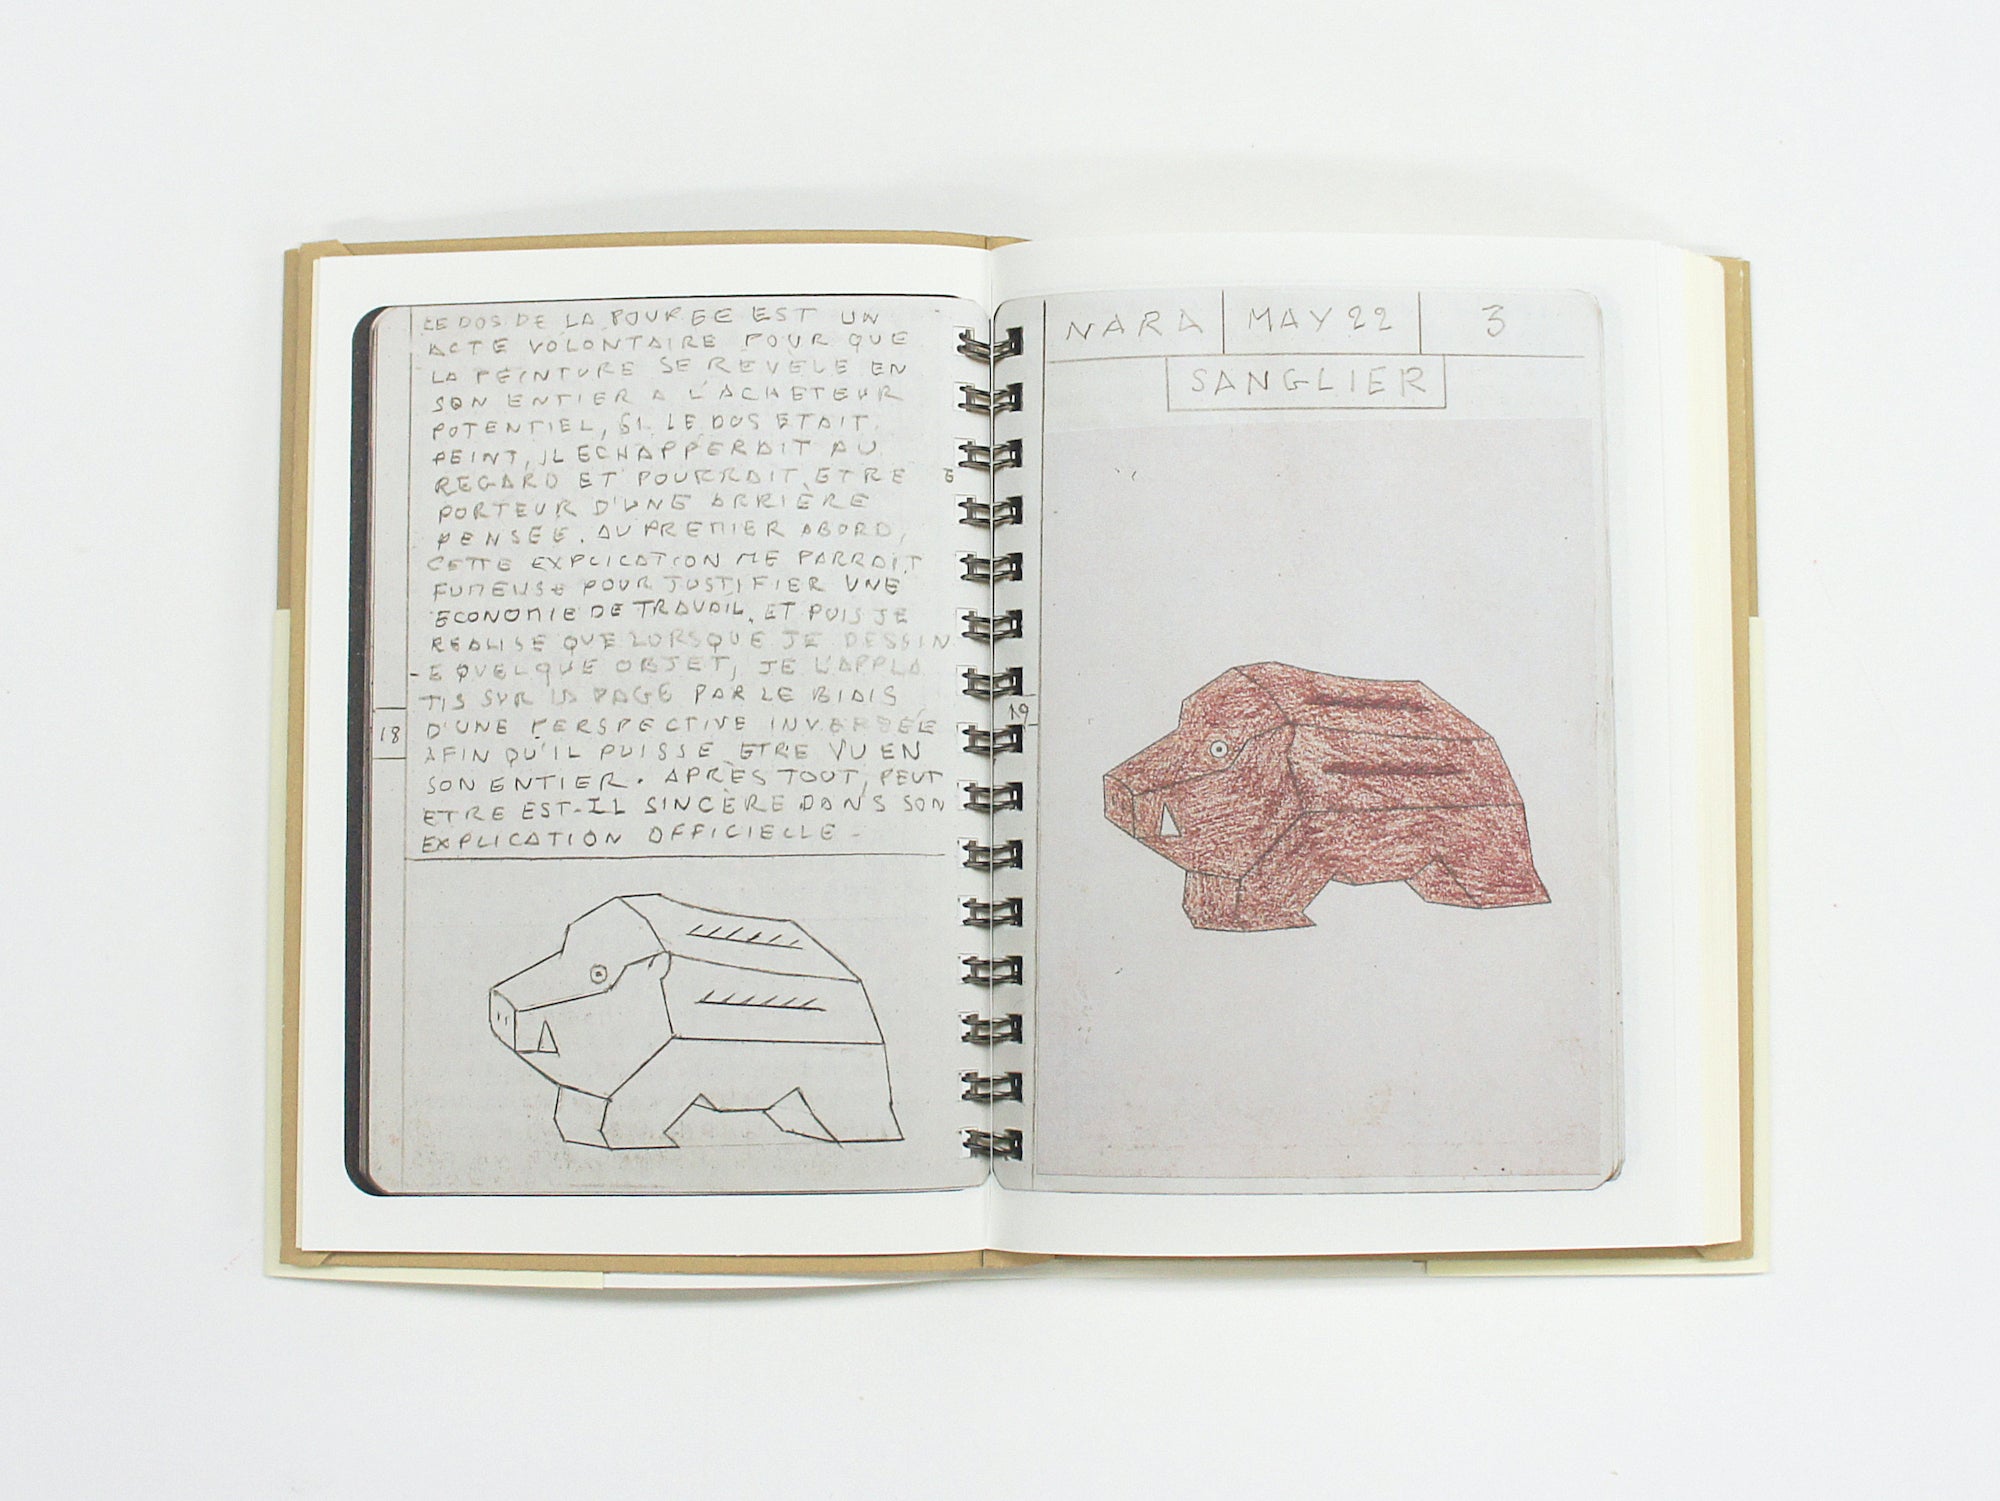 LE DOS DE LA POUPEE EST UN
ACTE VOLONTAIRE POUR QUE
LA PEINTURE SE REVELE EN
SON ENTIER A L'ACHETEUR
POTENTIEL, SI LE DOS ETAIT
PEINT, IL ECHAPPERAIT AU
REGARD ET POURRAIT ETRE
PORTEUR D'UNE ARRIÈRE
PENSEE. AU PREMIER ABORD,
CETTE EXPLICATION ME PARRAIT
FUMEUSE POUR JUSTIFIER UNE
ECONOMIE DE TRAVAIL. ET PUIS JE
REALISE QUE LORSQUE JE DESSIN
-E QUELQUE OBJET, JE L'APPLA
-TIS SUR LA PAGE PAR LE BIAIS
D'UNE PERSPECTIVE INVERSÉE
AFIN QU'IL PUISSE ETRE VU EN
SON ENTIER. APRÈS TOUT, PEUT
ETRE EST-IL SINCÈRE DANS SON
EXPLICATION OFFICIELLE -
18
NARA MAY 22 3
SANGLIER
19